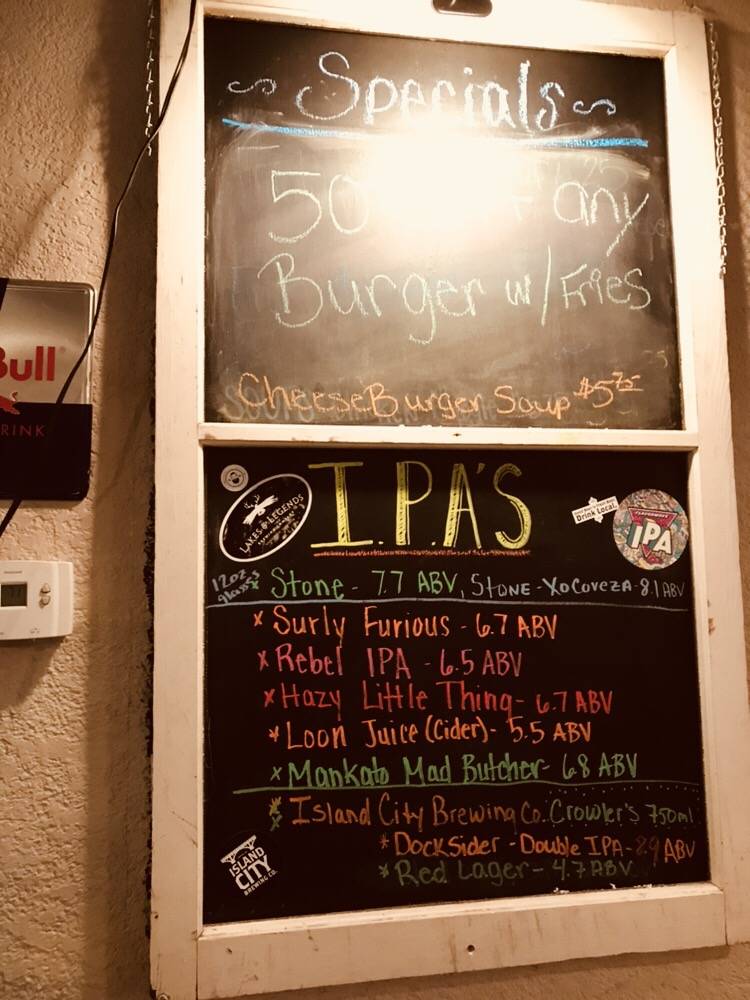 ~ Specials ~
50 any
Burger w/ Fries
CheeseBurger Soup $5.75
Bull
RINK
LAKES & LEGENDS
I.P.A'S
Drink Local
IPA
12oz glass
* Stone - 7.7 ABV, Stone - XoCoveza - 8.1 ABV
x Surly Furious - 6.7 ABV
x Rebel IPA - 6.5 ABV
x Hazy Little Thing - 6.7 ABV
* Loon Juice (Cider) - 5.5 ABV
x Mankato Mad Butcher - 6.8 ABV
* Island City Brewing Co. Crowler's 750ml
* DockSider - Double IPA - 8.9 ABV
* Red Lager - 4.7 ABV
ISLAND
CITY
BREWING CO.